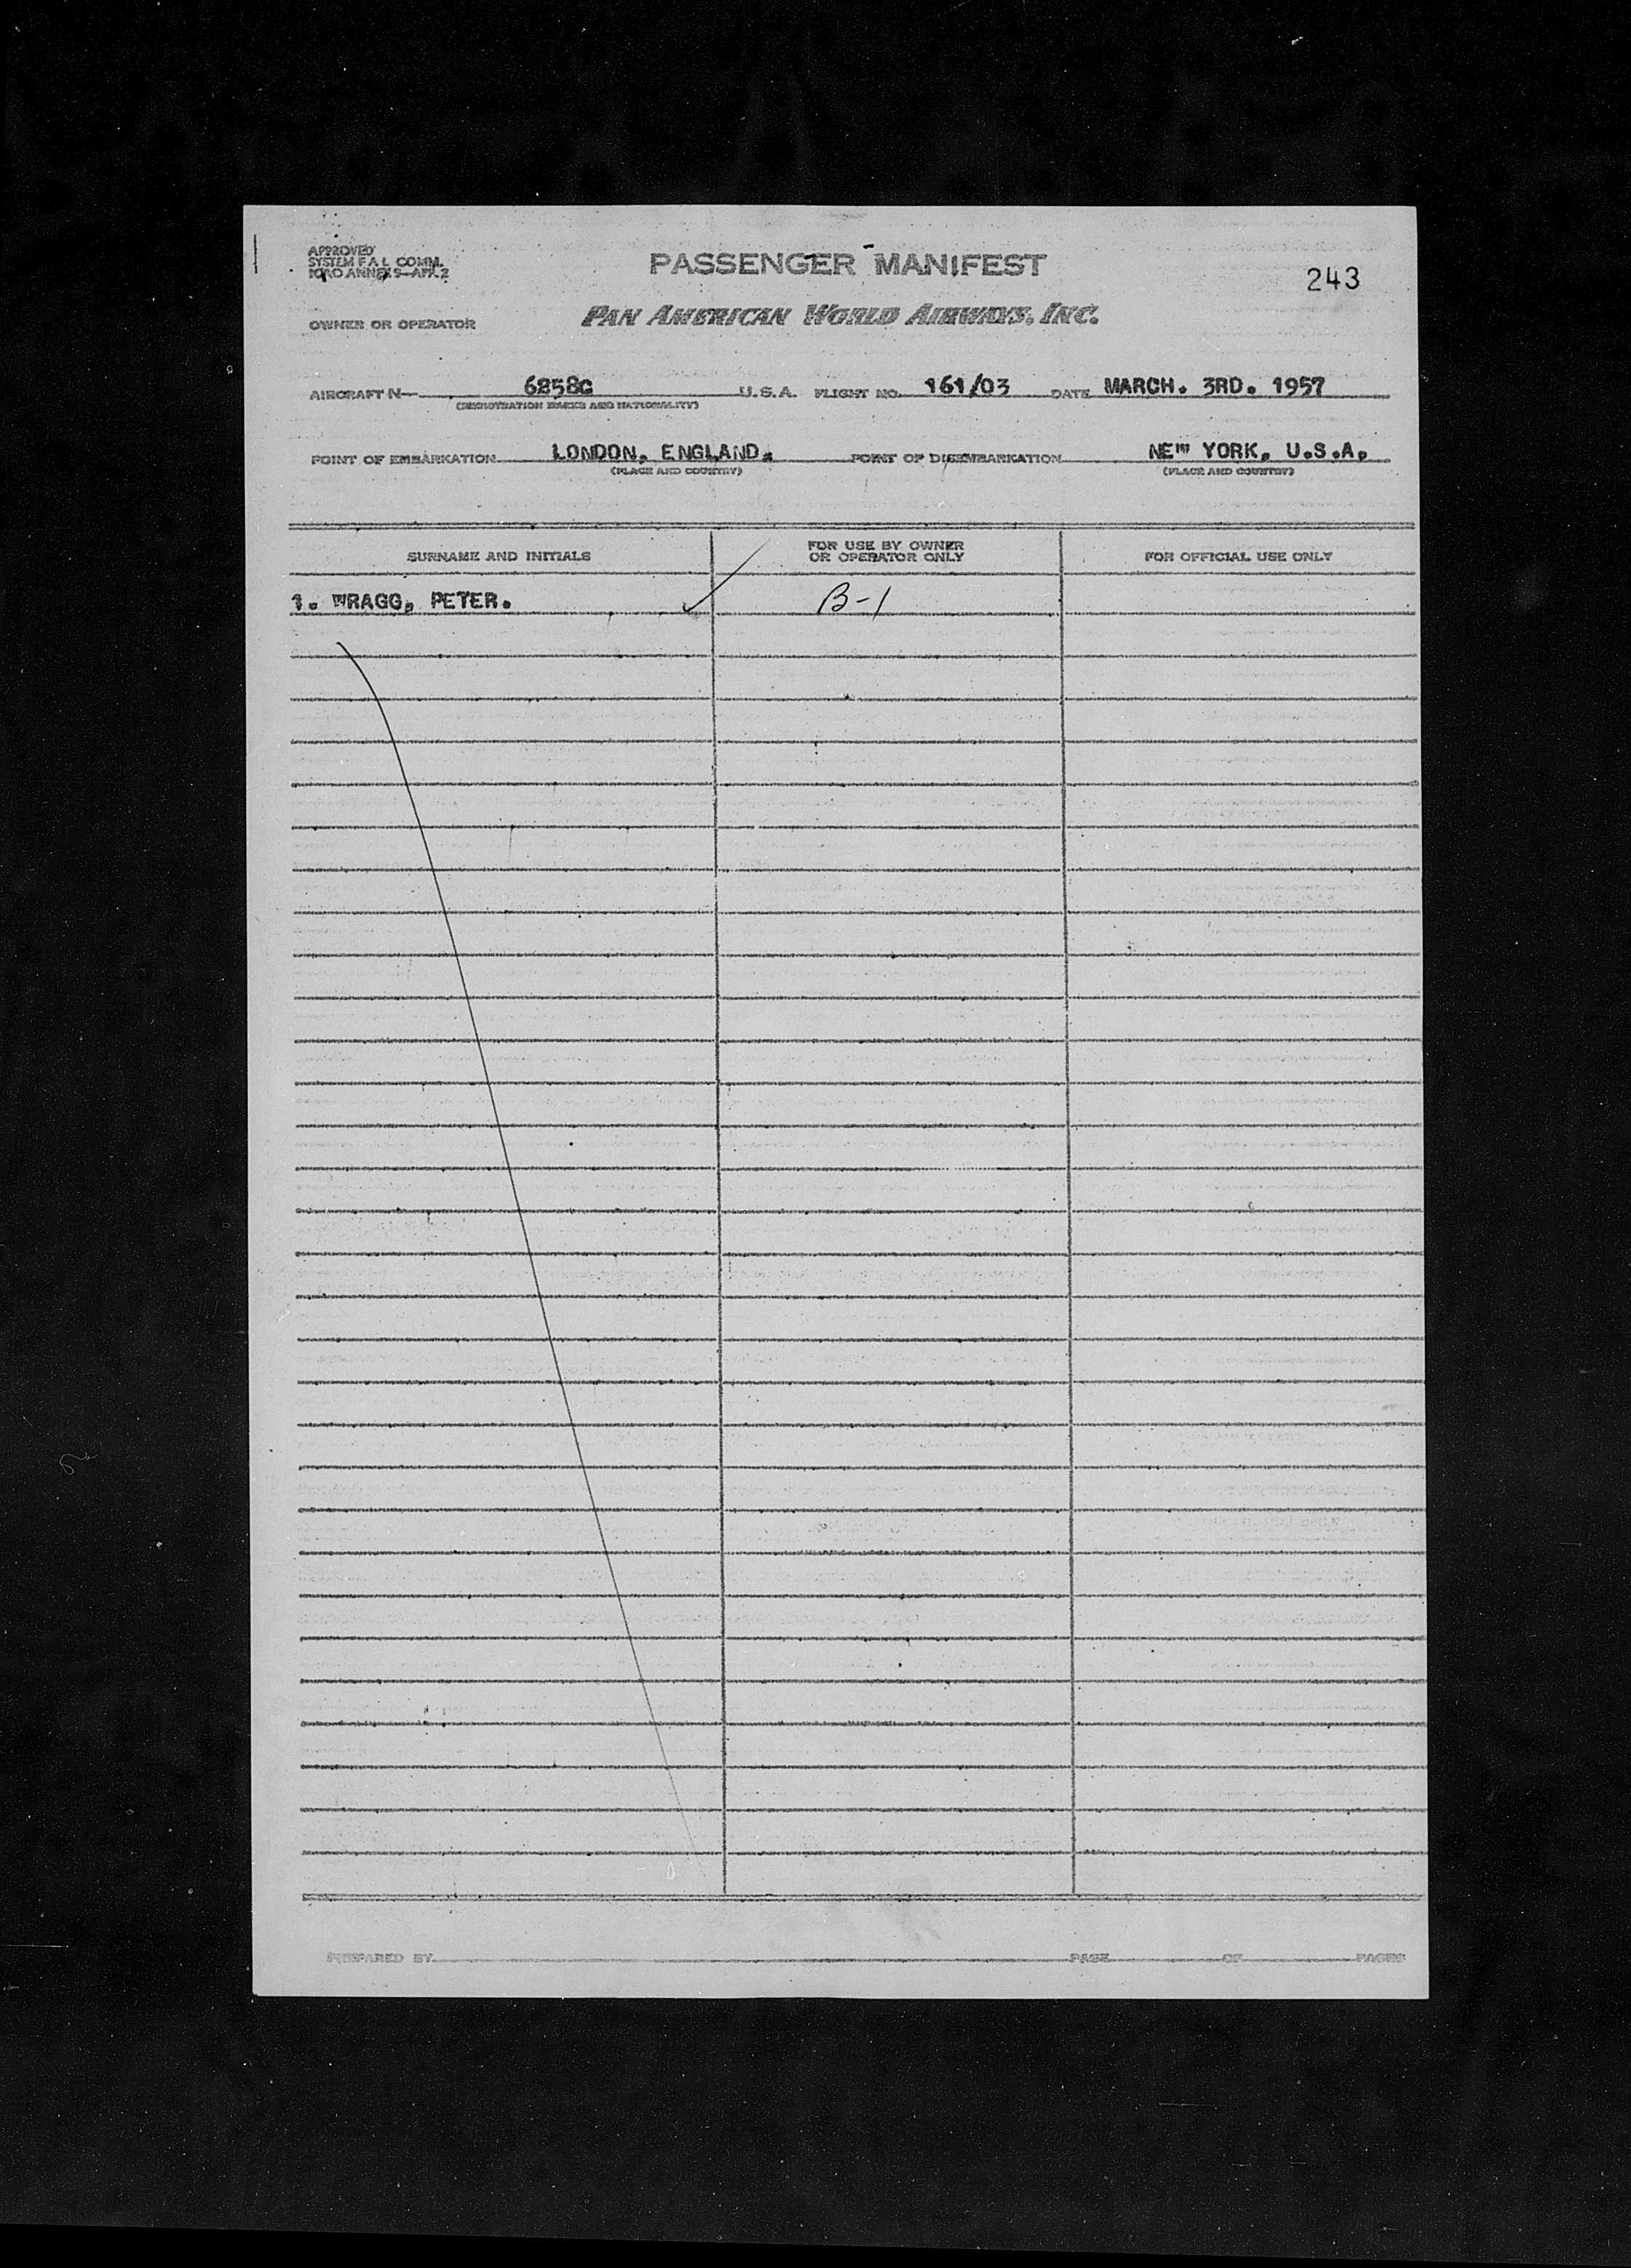 APPROVED
SYSTEM F A L COMM.
ICAO ANNEX 9—APP. 2
PASSENGER MANIFEST
243
OWNER OR OPERATOR
PAN AMERICAN WORLD AIRWAYS, INC.
AIRCRAFT N— 6258C U.S.A. FLIGHT NO. 161/03 DATE MARCH. 3RD. 1957
(REGISTRATION MARKS AND NATIONALITY)
POINT OF EMBARKATION LONDON, ENGLAND. POINT OF DISEMBARKATION NEW YORK, U.S.A.
(PLACE AND COUNTRY) (PLACE AND COUNTRY)
SURNAME AND INITIALS
FOR USE BY OWNER
OR OPERATOR ONLY
FOR OFFICIAL USE ONLY
1. WRAGG, PETER. B-1
PREPARED BY PAGE OF PAGES